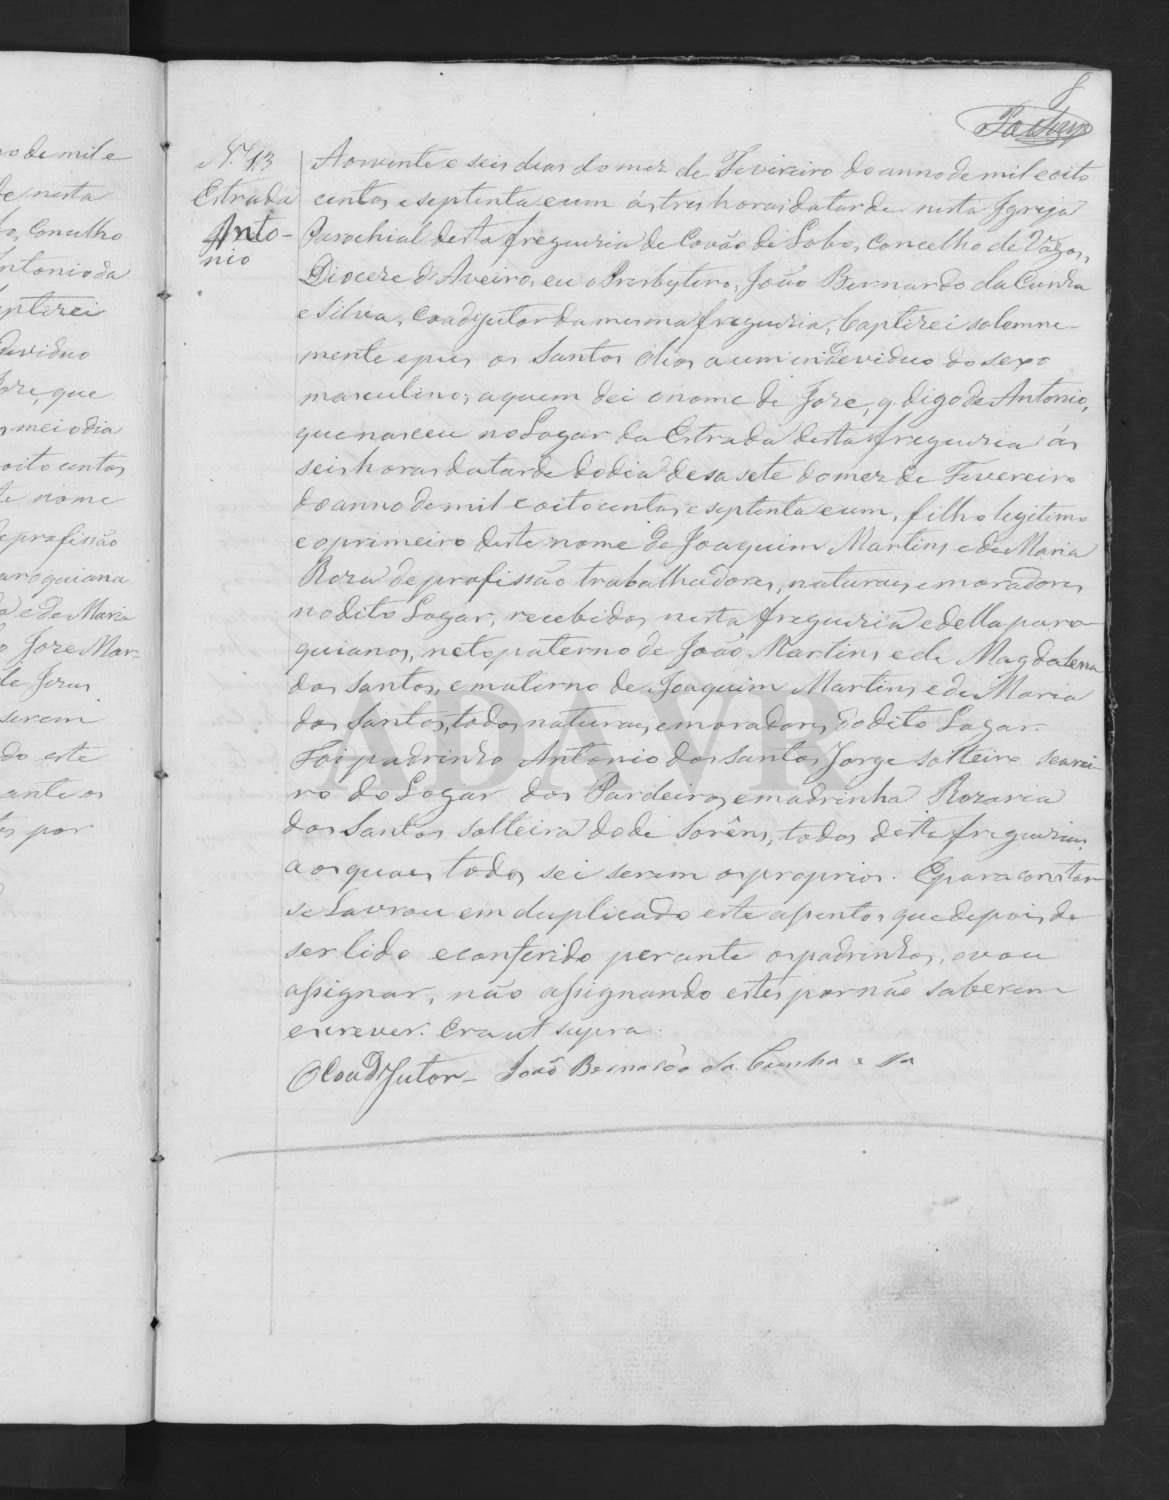 8
N.º 13
Estrada
Anto-
nio
Aos vinte e seis dias do mez de Fevireiro do anno de mil e oito
centos e septenta e um ás tres horas da tarde nesta Igreja
Parochial desta freguezia de Covão de Lobo, Concelho de Vagos,
Dioceze d'Aveiro, eu o Presbytero, João Bernardo da Cunha
e Silva, Coadjutor da mesma freguezia, baptizei solemne-
mente e pus os Santos Olios a um individuo do sexo
masculino, a quem dei o nome de Joze, q. digo de Antonio,
que nasceu no Logar da Estrada desta freguezia ás
seis horas da tarde do dia desasete do mez de Fevereiro
do anno de mil e oitocentos e septenta e um, filho legitimo
e o primeiro deste nome de Joaquim Martins e de Maria
Roza de profissão trabalhadores, naturaes e moradores
no dito Logar, recebidos nesta freguezia e della paro-
quianos, neto paterno de João Martins e de Magdalena
dos Santos, e materno de Joaquim Martins e de Maria
dos Santos, todos naturaes e moradores do dito Logar.
Foi padrinho Antonio dos Santos Jorge solteiro searei-
ro do Logar dos Pardeiros e madrinha Rozaria
dos Santos solteira do de Sorêns, todos desta freguezia,
aos quaes todos sei serem os proprios. E para constar
se lavrou em duplicado este assento, que depois de
ser lido e conferido perante os padrinhos, o vou
assignar, não assignando estes por não saberem
escrever. Era ut supra.
O Coadjutor - João Bernardo da Cunha e Sa
ADAVR
o de mil e
de nesta
Concelho
Antonio da
baptizei
dividuo
Joze, que
meio dia
oitocentos
te nome
e profissão
aroquiana
e de Maria
Joze Mar-
de Jezus
serem
do este
ante os
por